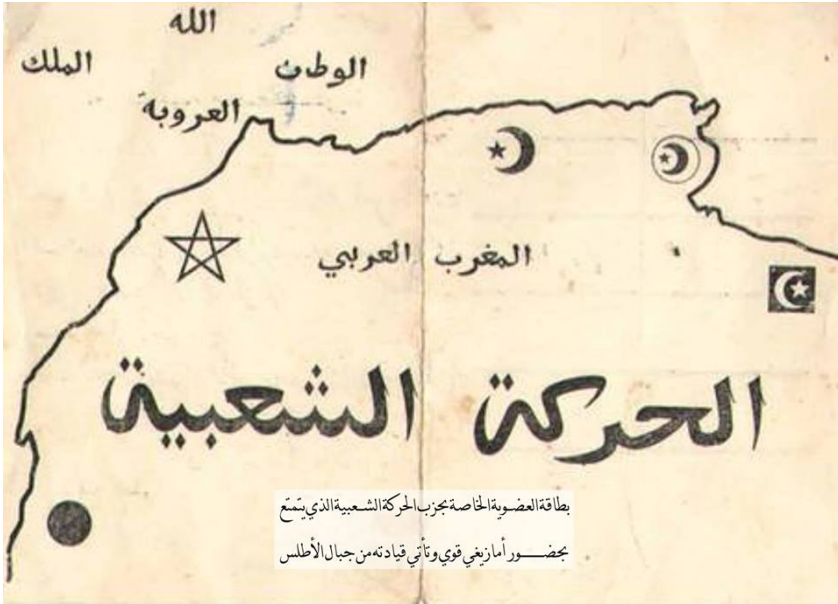 الله
الملك
الوطن
العروبة
المغرب العربي
الحركة الشعبية
بطاقة العضوية الخاصة بحزب الحركة الشعبية الذي يتمتع
بحضور أمازيغي قوي وتأتي قيادته من جبال الأطلس